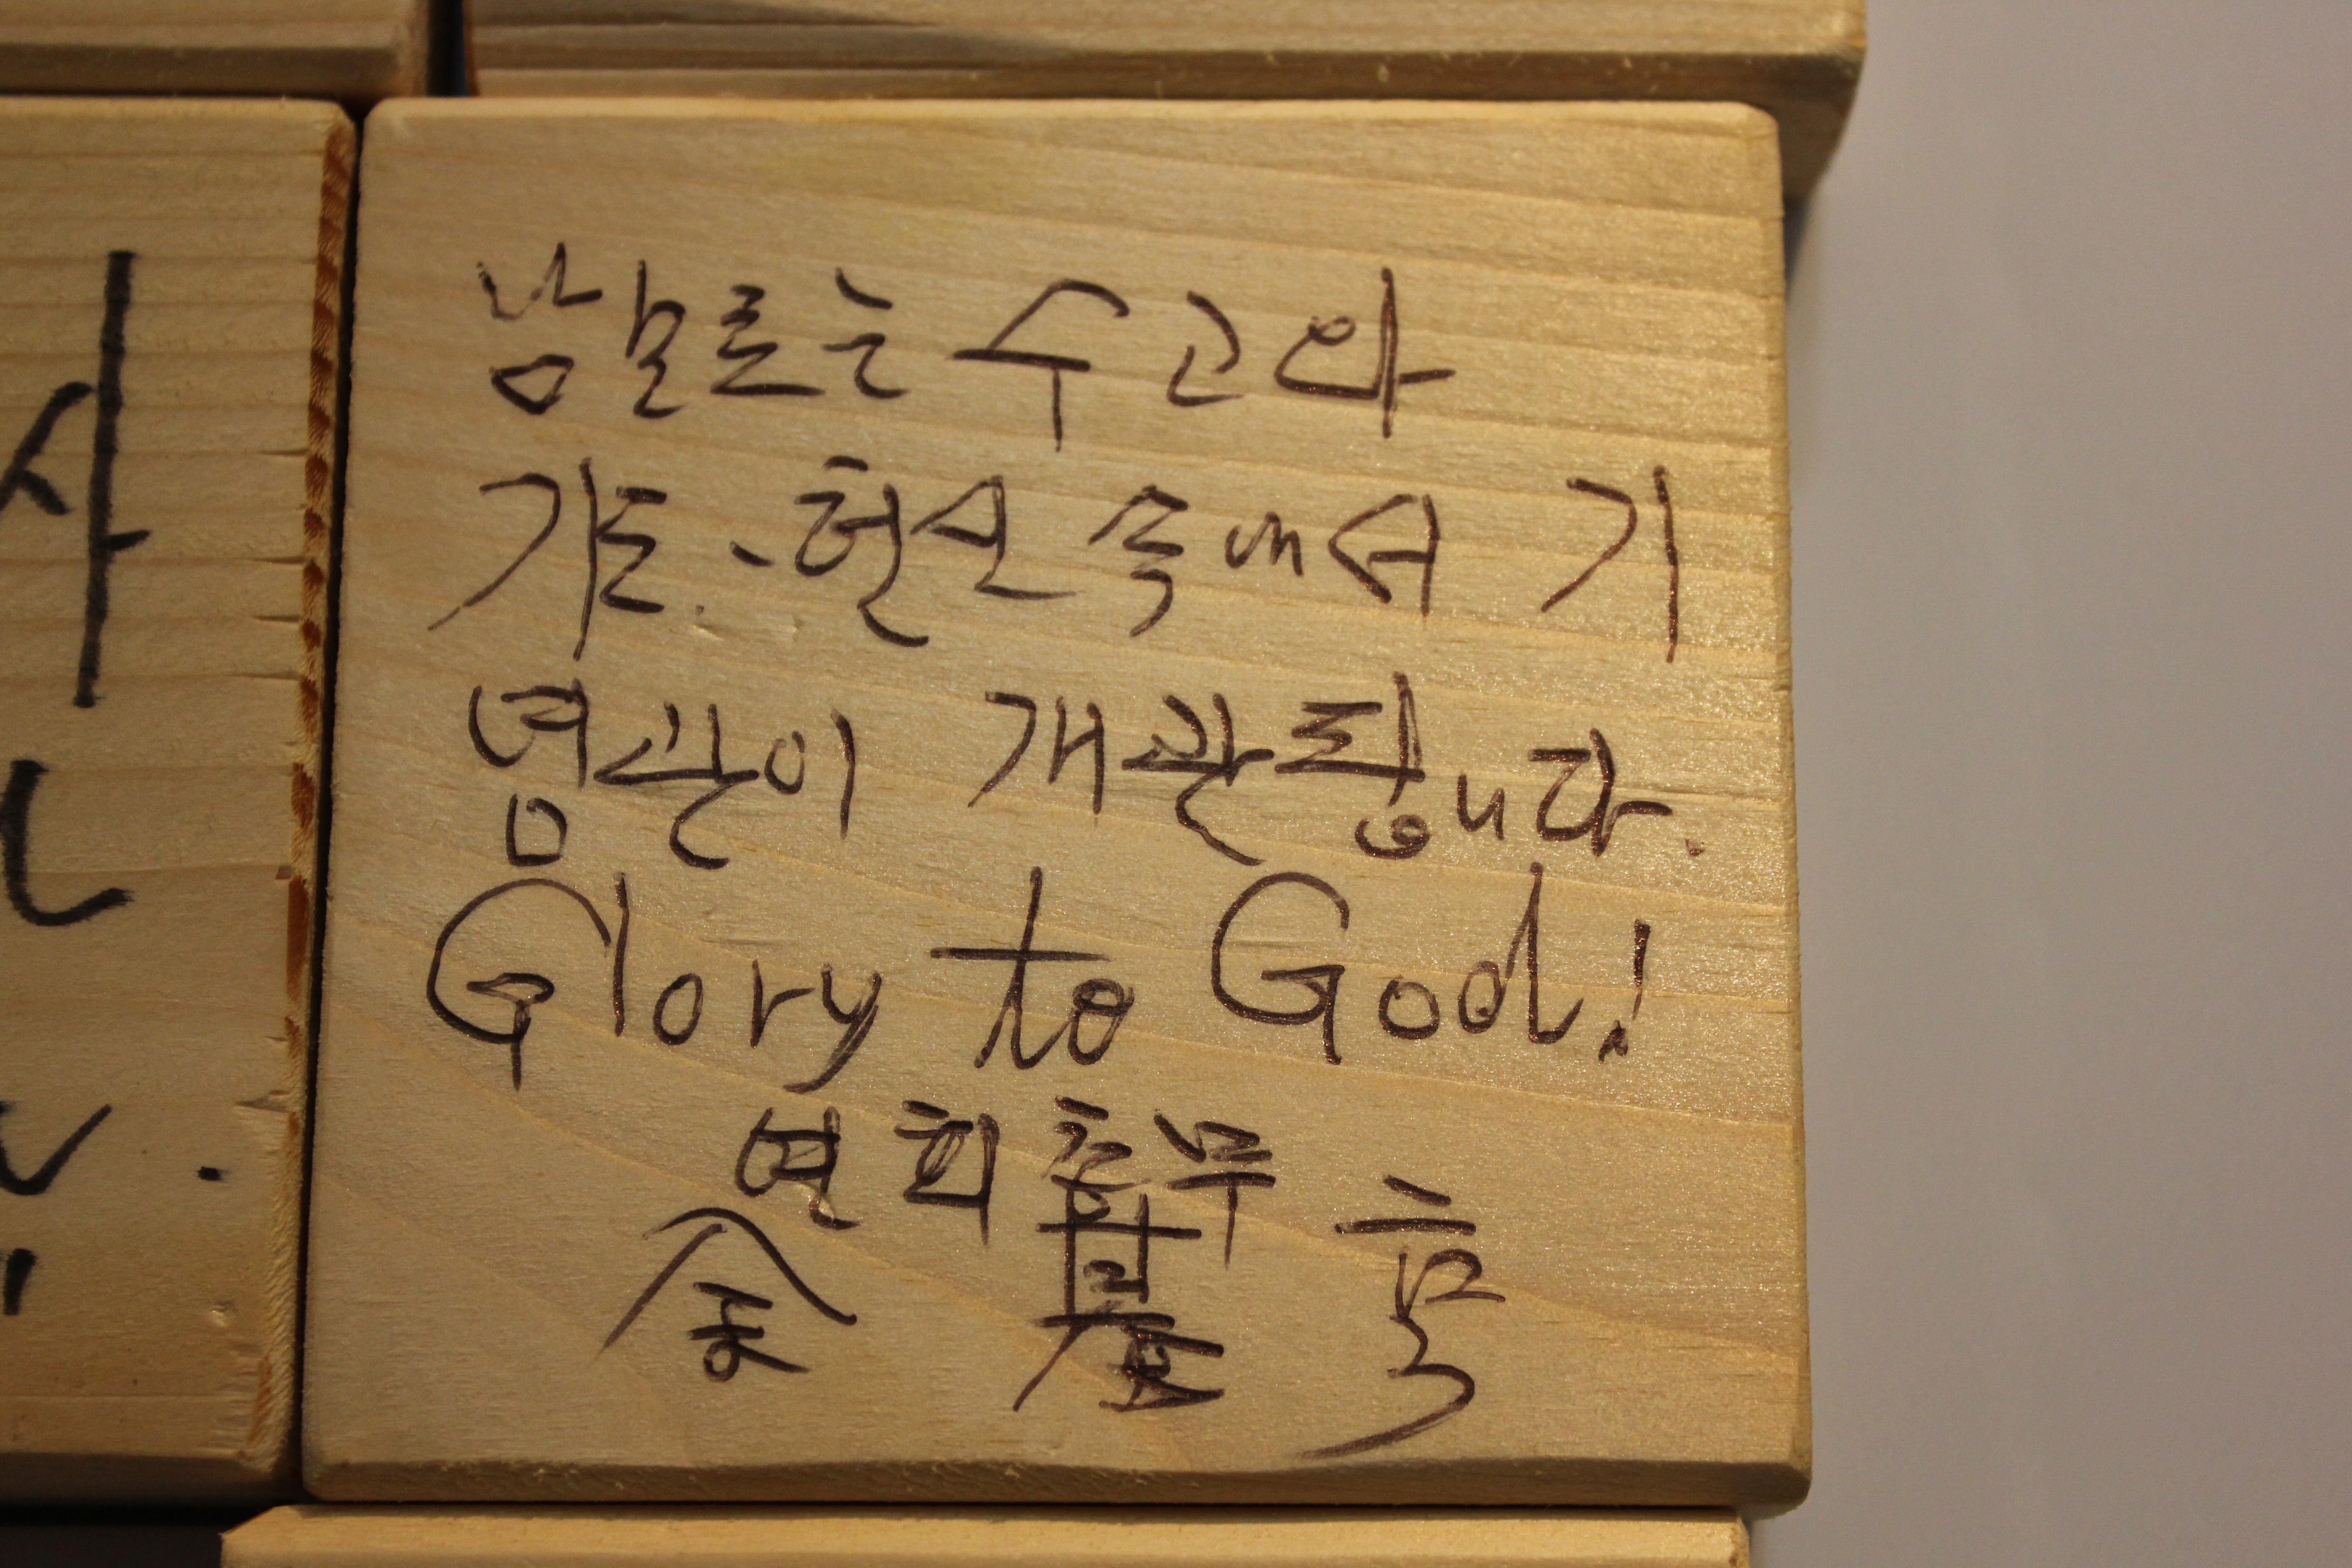 남모르는 수고와
기도、헌신 속에서 기
념관이 개관됩니다.
Glory to God!
연회총무
사